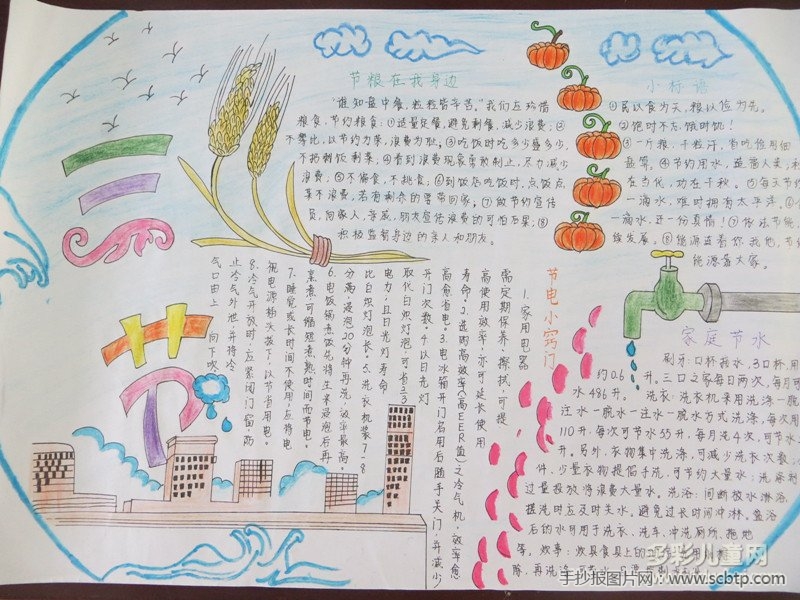 三
节
节粮在我身边
"谁知盘中餐,粒粒皆辛苦。"我们应珍惜
粮食,节约粮食:①适量定餐,避免剩餐,减少浪费;②
不攀比,以节约为荣,浪费为耻。③吃饭时吃多少盛多少,
不扔剩饭剩菜。④看到浪费现象勇敢制止,尽力减少
浪费。⑤不偏食,不挑食;⑥到饭店吃饭时,点饭点
菜不浪费,若有剩余的要带回家;⑦做节约宣传
员,向家人,亲戚,朋友宣传浪费的可怕后果;⑧
积极监督身边的亲人和朋友。
小标语
①民以食为天,粮以俭为先。
②饱时不忘饿时饥!
③一斤粮,千粒汗,省吃俭用细
④节约用水,造福人类;
在当代,功在千秋。
一滴水,难时拥有太平洋。
一滴水,还一份真情!⑦依法节能,
续发展。⑧能源连着你我他,节
能源靠大家。
节电小窍门
1.家用电器
需定期保养、擦拭,可提
高使用效率,亦可延长使用
寿命。2.选购高效率(高EER值)之冷气机,效率愈
高愈省电。3.电冰箱开门名用后随手关门,并减少
开门次数。4.以日光灯
取代白炽灯泡可省2/3
电力,且日光灯寿命
比白炽灯泡长。5.洗衣机装7-8
分满,浸泡20分钟再洗,效率最高。
6.电饭锅煮饭先将生米浸泡后再
烹煮可缩短煮熟时间而节电。
7.睡觉或长时间不使用,应将电
视电源插头拔下,以节省用电。
8.冷气开放时,应紧闭门窗,防
止冷气外泄,并将冷
气口由上向下吹。
家庭节水
刷牙:口杯接水,3口杯,用
约0.6升。三口之家每日两次,每月可
水486升。洗衣:洗衣机采用洗涤一脱
注水一脱水一注水一脱水方式洗涤,每次用
110升,每次可节水55升,每月洗4次,可节水
升。另外,衣物集中洗涤,可减少洗衣次数,
件、少量衣物提倡手洗,可节约大量水;洗涤剂
过量投放将浪费大量水。洗浴:间断放水淋浴,
搓洗时应及时关水。避免过长时间冲淋。盆浴
后的水可用于洗衣、洗车、冲洗厕所、拖地
等。炊事:炊具食具上的
除,再洗涤
多彩儿童网
手抄报图片网/www.scbtp.com